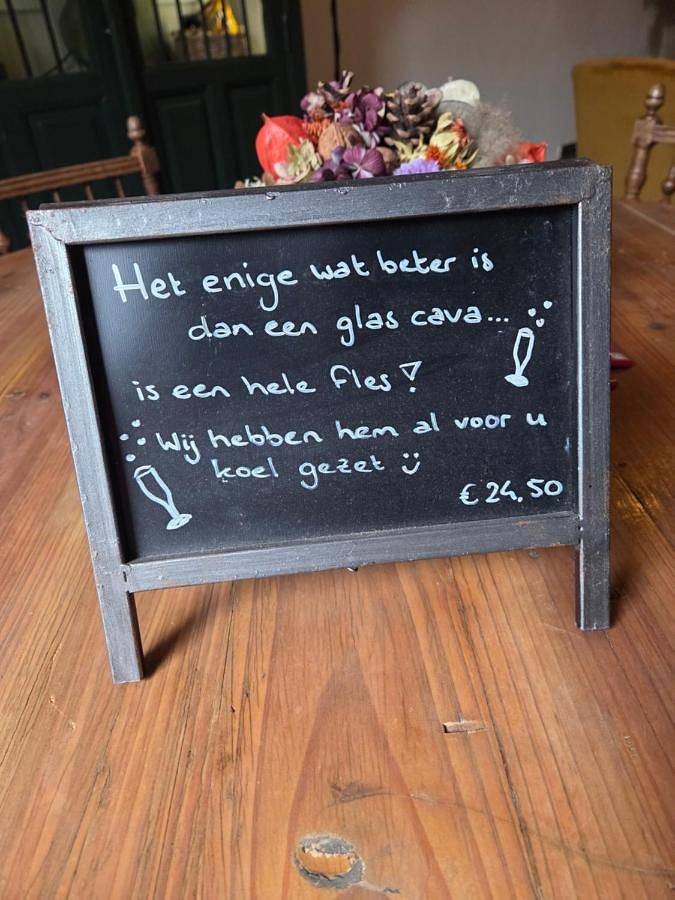 Het enige wat beter is
dan een glas cava...
is een hele fles!
Wij hebben hem al voor u
koel gezet ü
€ 24,50